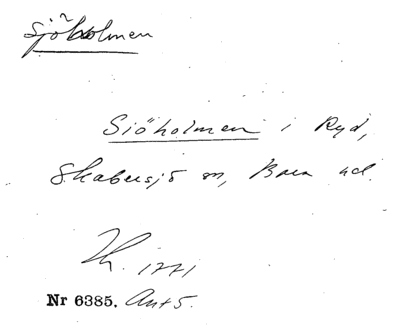 Sjöholmen
Sjöholmen i Ryd,
Skabersjö sn, Bara hd.
Th. 1771
Nr 6385. Ant 5.